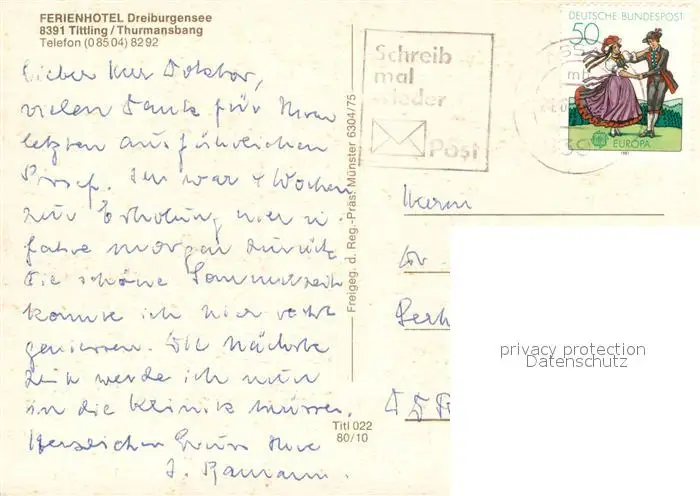 FERIENHOTEL Dreiburgensee
8391 Tittling / Thurmansbang
Telefon (0 85 04) 82 92
Lieber Herr Doktor,
vielen Dank für Ihren
letzten ausführlichen
Brief. Ich war 4 Wochen
zur Erholung hier u.
fahre morgen zurück
Die schöne Sommerzeit
konnte ich hier recht
geniessen. Die nächste
Zeit werde ich nun
in die Klinik müssen.
Herzlichen Gruss Ihre
Freigeg. d. Reg.-Präs. Münster 6304/75
Titl 022
80/10
Schreib
mal
wieder
Post
DEUTSCHE BUNDESPOST
50
EUROPA
1981
Herrn
Dr
privacy protection
Datenschutz